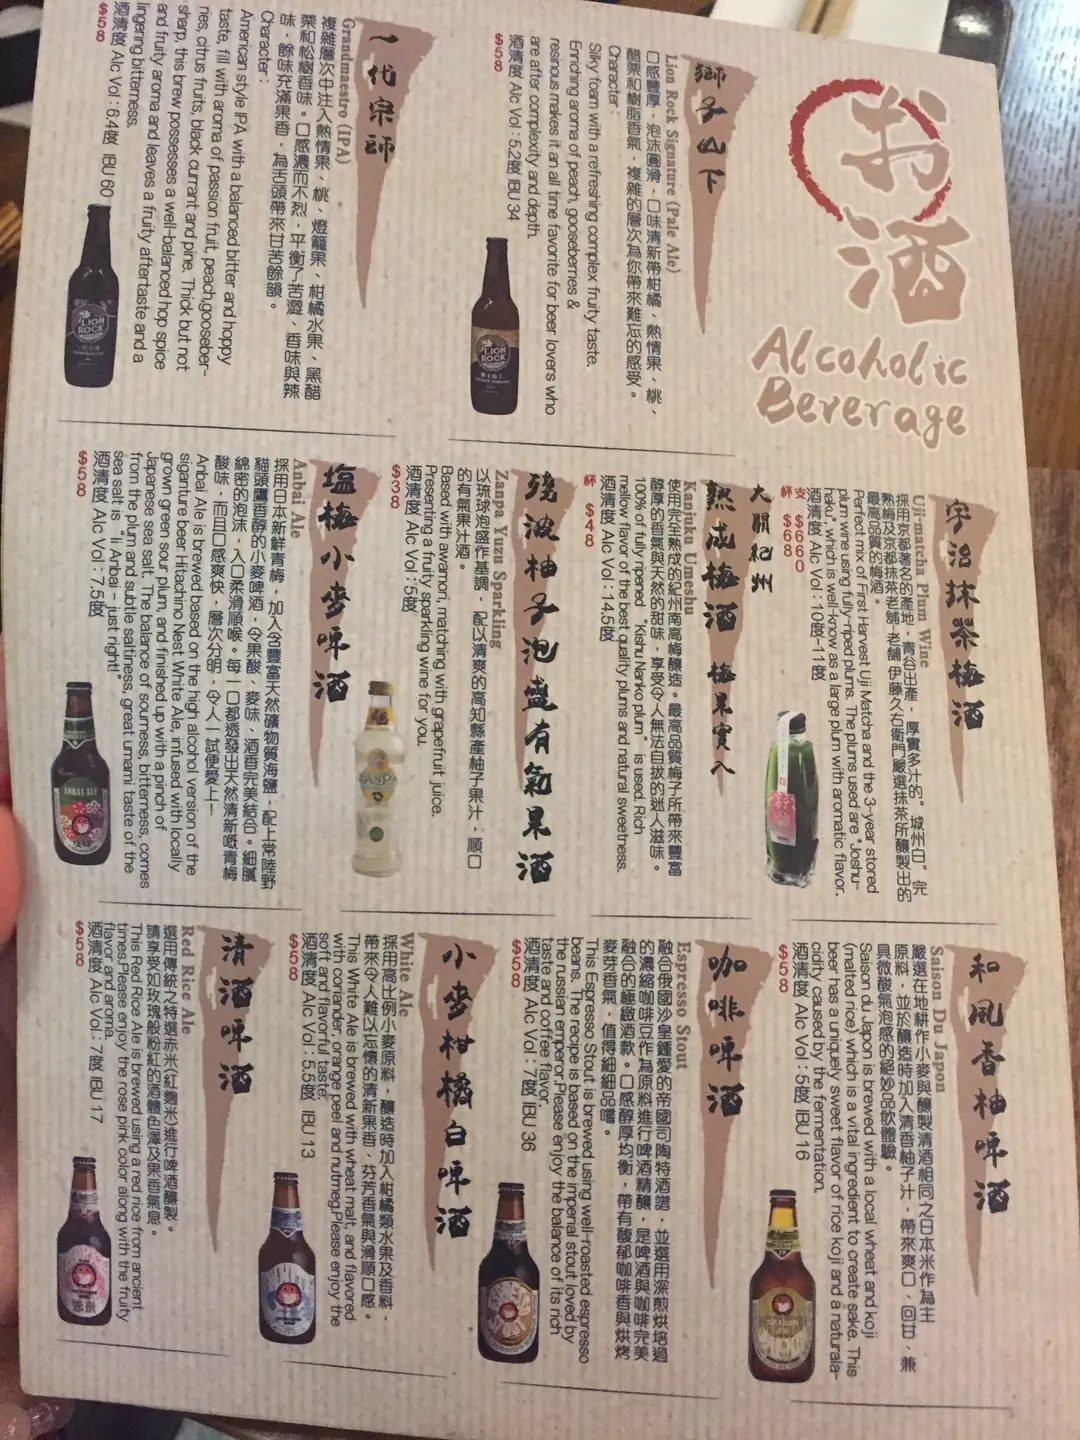 お酒
Alcoholic
Beverage
獅子山下
Lion Rock Signature (Pale Ale)
口感豐厚，泡沫圓滑，口味清新帶柑橘、熱情果、桃、
醋栗和樹脂香氣，複雜的層次為你帶來難忘的感受。
Character :
Silky foam with a refreshing complex fruity taste.
Enriching aroma of peach, gooseberries &
resinous makes it an all time favorite for beer lovers who
are after complexity and depth.
酒清度 Alc Vol : 5.2度 IBU 34
$58
一代宗師
Grandmaestro (IPA)
複雜層次中注入熱情果、桃、燈籠果、柑橘水果、黑醋
栗和松樹香味。口感濃而不烈，平衡了苦澀，香味與辣
味，餘味充滿果香，為舌頭帶來甘苦餘韻。
Character :
American style IPA with a balanced bitter and hoppy
taste, fill with aroma of passion fruit, peach,gooseber-
ries, citrus fruits, black currant and pine. Thick but not
sharp, this brew possesses a well-balanced hop spice
and fruity aroma and leaves a fruity aftertaste and a
lingering bitterness.
酒清度 Alc Vol : 6.4度 IBU 60
$58
宇治抹茶梅酒
Uji-matcha Plum Wine
採用京都著名的產地，青谷出產，厚實多汁的“城州白”完
熟梅及京都抹茶老舖-老舖 伊藤久右衛門嚴選抹茶所釀製出的
最高品質的梅酒。
Perfect mix of First Harvest Uji Matcha and the 3-year stored
plum wine using fully-riped plums. The plums used are "Joshu-
haku", which is well-know as a large plum with aromatic flavor.
酒清度 Alc Vol : 10度-11度
支 $660
杯 $68
大關紀州
熟成梅酒 梅果實入
Kanjuku Umeshu
使用完全熟成的紀州南高梅釀造。最高品質梅子所帶來豐富
醇厚的香氣與天然的甜味，享受令人無法自拔的迷人滋味。
100% of fully ripened "Kishu Nanko plum" is used. Rich
mellow flavor of the best quality plums and natural sweetness.
酒清度 Alc Vol : 14.5度
杯 $48
殘波柚子泡盛有氣果酒
Zanpa Yuzu Sparkling
以琉球泡盛作基調，配以清爽的高知縣產柚子果汁，順口
的有氣果汁酒。
Based with awamori, matching with grapefruit juice.
Presenting a fruity sparkling wine for you.
酒清度 Alc Vol : 5度
$38
塩梅小麥啤酒
Anbai Ale
採用日本新鮮青梅，加入含豐富天然礦物質海鹽，配上常陸野
貓頭鷹香醇的小麥啤酒，令果酸、麥味、酒香完美結合。細膩
綿密的泡沫，入口柔滑順喉。每一口都透發出天然清新嘅青梅
酸味，而且口感爽快，層次分明，令人一試便愛上！
Anbai Ale is brewed based on the high alcohol version of the
siganture beer Hitachino Nest White Ale, infused with locally
grown green sour plum, and finished up with a pinch of
Japanese sea salt. The balance of sourness, bitterness, comes
from the plum and subtle saltiness, great umami taste of the
sea salt is "Ii Anbai - just right!"
酒清度 Alc Vol : 7.5度
$58
和風香柚啤酒
Saison Du Japon
嚴選在地耕作小麥與釀製清酒相同之日本米作為主
原料，並於釀造時加入清香柚子汁，帶來爽口、回甘、兼
具微酸氣泡感的絕妙品飲體驗。
Saison du Japon is brewed with a local wheat and koji
(malted rice) which is a vital ingredient to create sake. This
beer has a uniquely sweet flavor of rice koji and a naturala-
cidity caused by the fermentation.
酒清度 Alc Vol : 5度 IBU 16
$58
咖啡啤酒
Espresso Stout
融合俄國沙皇鍾愛的帝國司陶特酒譜，並選用深煎烘培過
的濃縮咖啡豆作為原料進行啤酒精釀，是啤酒與咖啡完美
融合的極緻酒款。口感醇厚均衡，帶有馥郁咖啡香與烘烤
麥芽香氣，值得細細品嚐。
This Espresso Stout is brewed using well-roasted espresso
beans. The recipe is based on the imperial stout loved by
the russian emperor.Please enjoy the balance of its rich
taste and coffee flavor.
酒清度 Alc Vol : 7度 IBU 36
$58
小麥柑橘白啤酒
White Ale
採用高比例小麥原料，釀造時加入柑橘類水果及香料，
帶來令人難以忘懷的清新果香、芬芳香氣與滑順口感。
This White Ale is brewed with wheat malt, and flavored
with coriander, orange peel and nutmeg.Please enjoy the
soft and flavorful taste.
酒清度 Alc Vol : 5.5度 IBU 13
$58
清酒啤酒
Red Rice Ale
選用傳統之特選赤米(紅麴米)進行啤酒釀製。
請享受如玫瑰般粉紅的酒體色澤及果香氣息。
This Red Rice Ale is brewed using a red rice from ancient
times.Please enjoy the rose pink color along with the fruity
flavor and aroma.
酒清度 Alc Vol : 7度 IBU 17
$58
LION
ROCK
LION
ROCK
ZANPA
ANBAI ALE
赤米